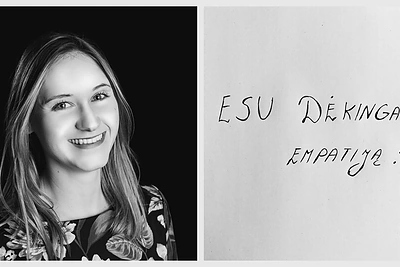 ESU DĖKINGA
EMPATIJĄ :